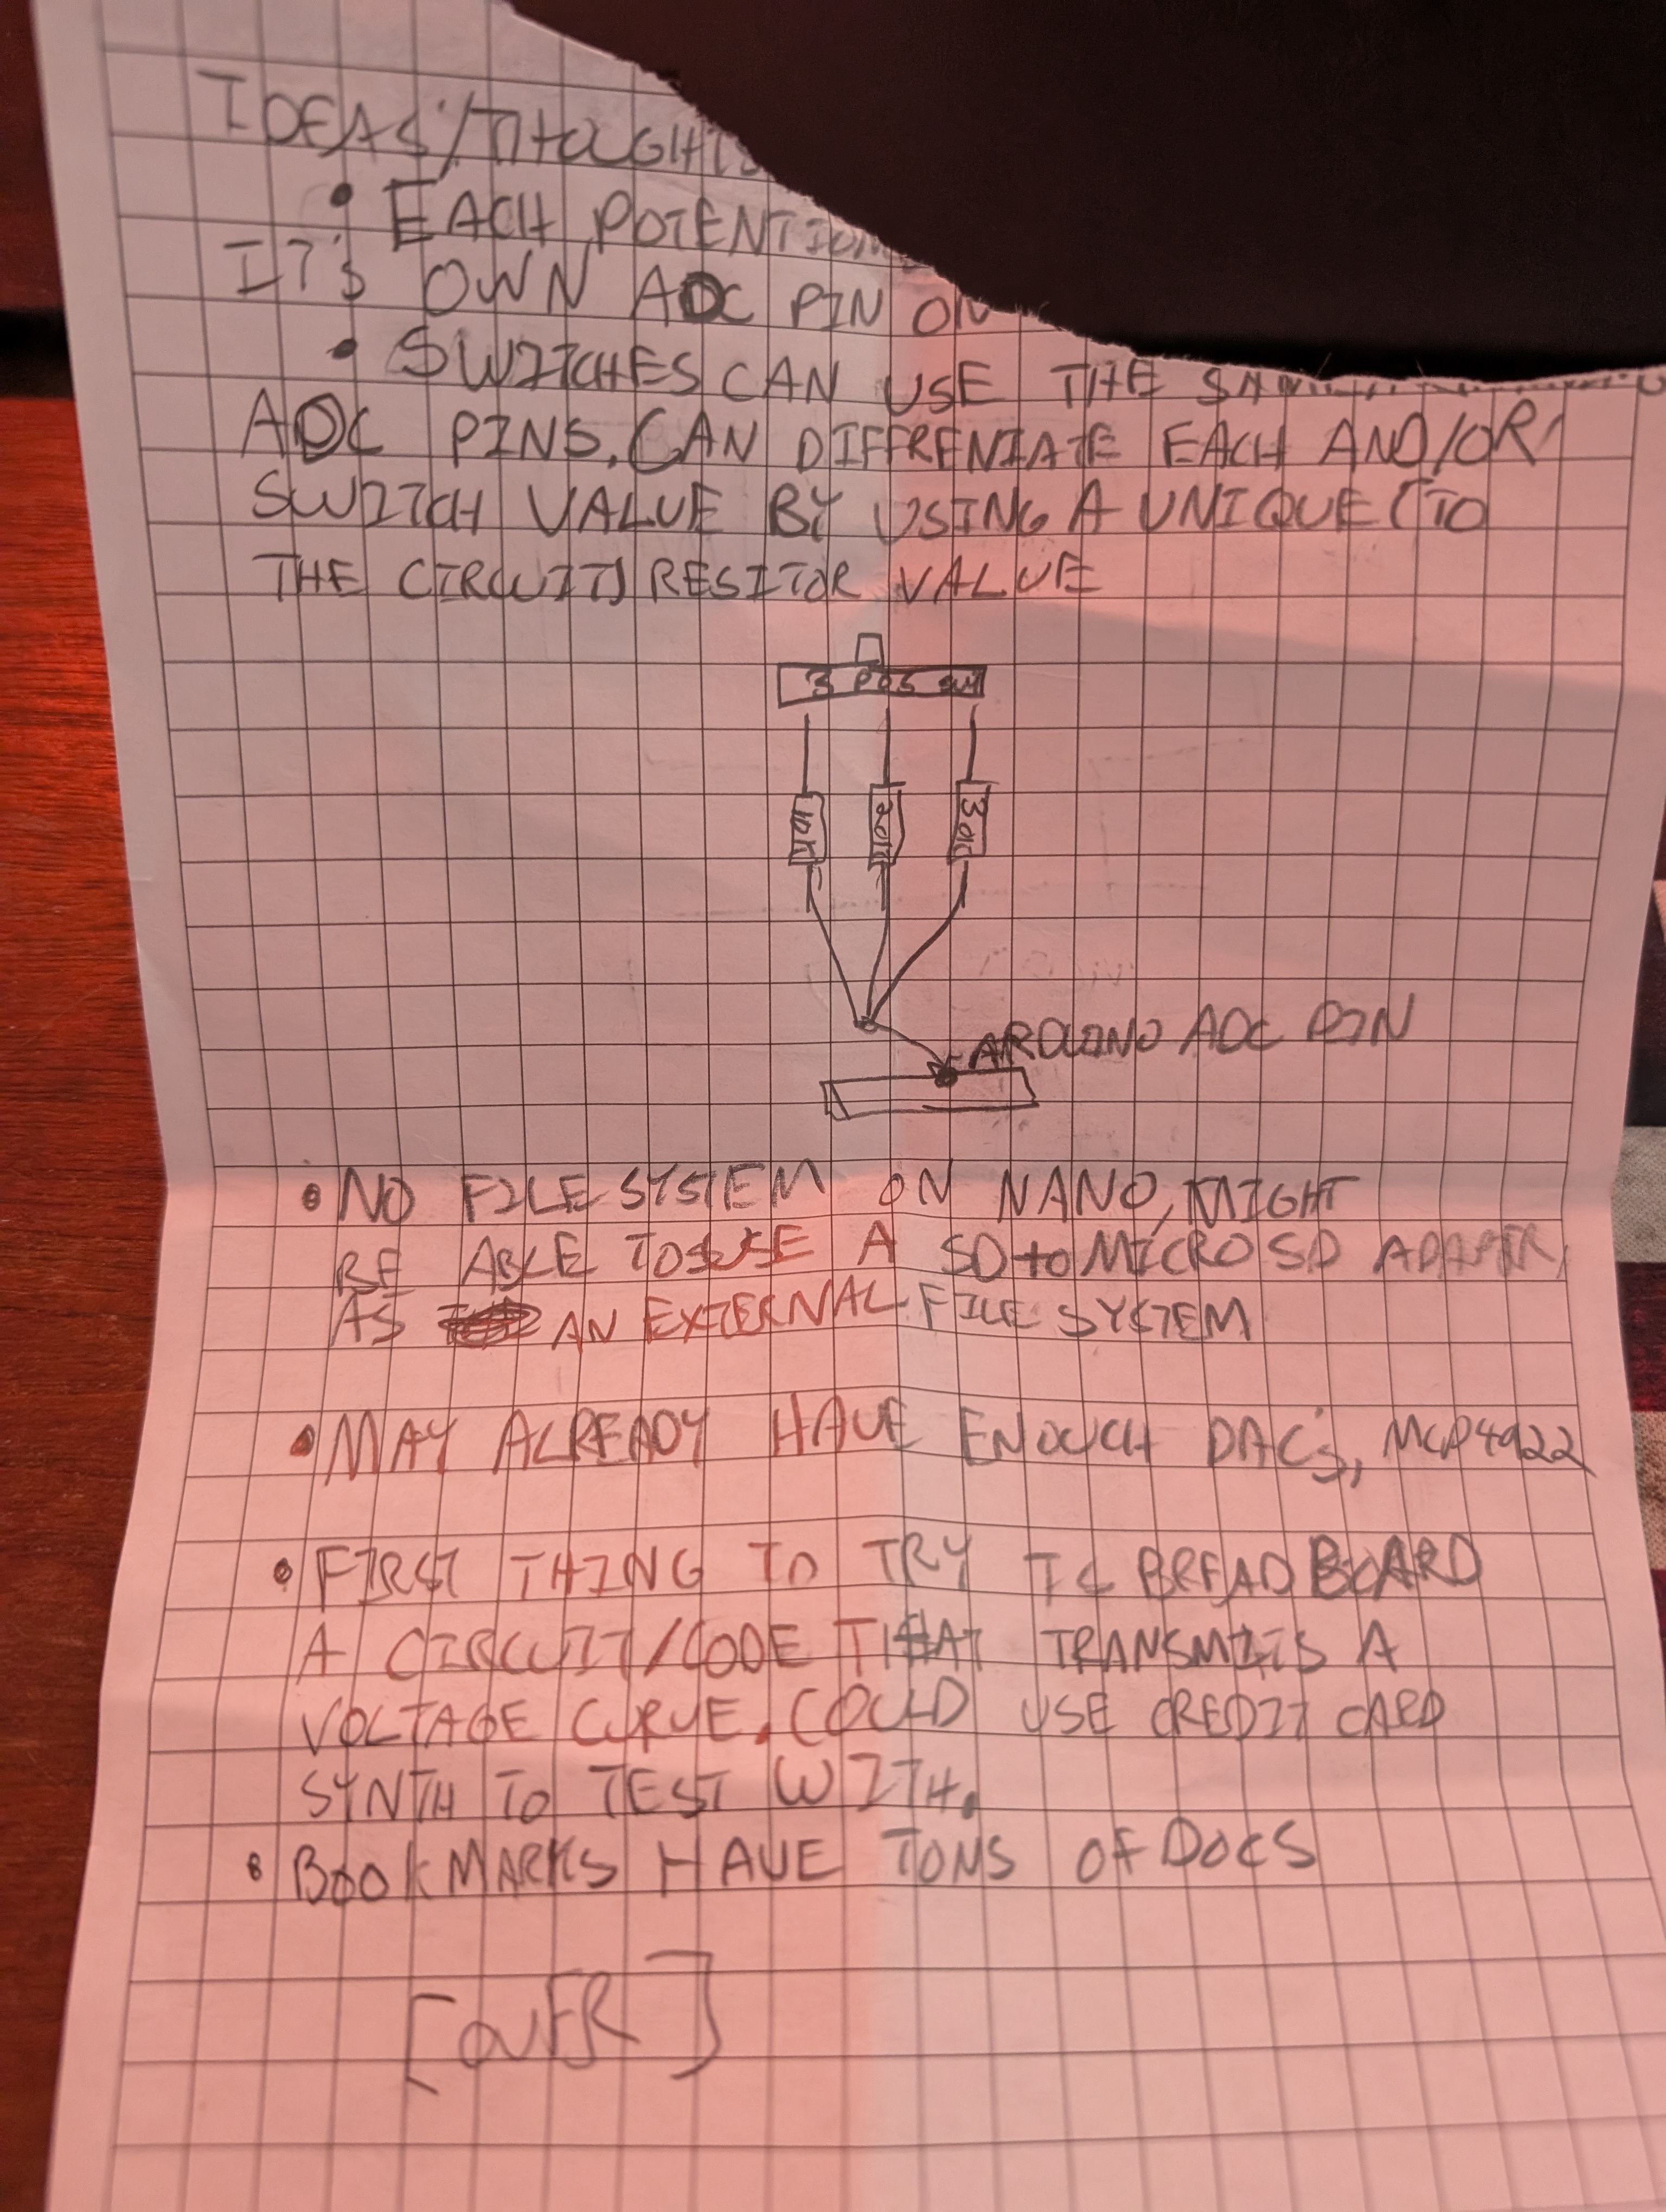 IDEAS/THOUGHTS
• EACH POTENTIOM
IT'S OWN ADC PIN ON
• SWITCHES CAN USE THE
ADC PINS. CAN DIFFRENIATE EACH AND/OR
SWITCH VALUE BY USING A UNIQUE (TO
THE CIRCUIT) RESITOR VALUE
3 POS SW
10K 20K 30K
ARDUINO ADC PIN
• NO FILE SYSTEM ON NANO, MIGHT
BE ABLE TO USE A SD to MICRO SD ADAPTER,
AS AN EXTERNAL FILE SYSTEM
• MAY ALREADY HAVE ENOUGH DAC's, MCP4922
• FIRST THING TO TRY IS BREAD BOARD
A CIRCUIT/CODE THAT TRANSMITS A
VOLTAGE CURVE. COULD USE CREDIT CARD
SYNTH TO TEST WITH.
• BOOKMARKS HAVE TONS OF DOCS
[OVER]